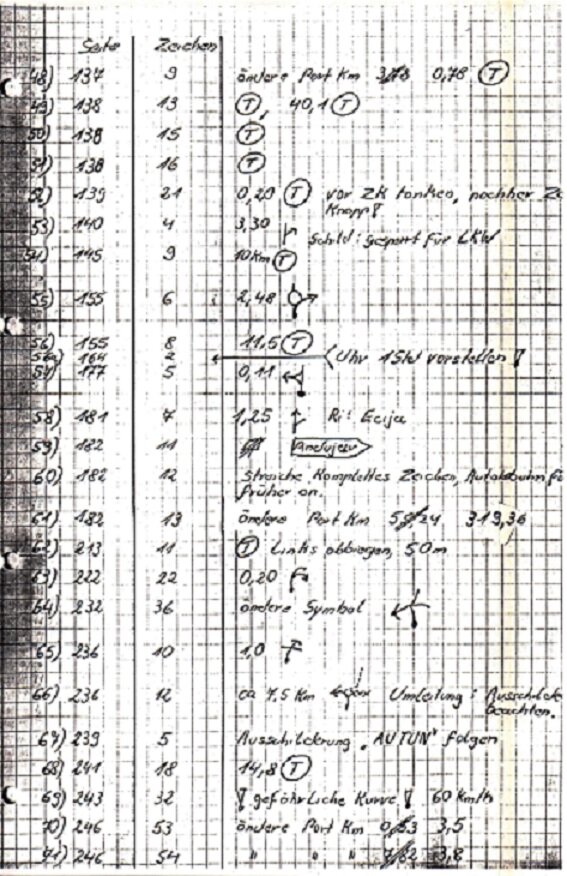 Seite Zeichen
48) 137 9 ändere Part Km 3,78 0,78 T
49) 138 13 T, 40,1 T
50) 138 15 T
51) 138 16 T
52) 139 21 0,20 T vor ZK tanken, nachher ZK
Knapp!
53) 140 4 3,30 Schild: gesperrt für LKW
54) 145 9 10 Km T
55) 155 6 2,48
56) 155 8 11,5 T
56a) 164 2 Uhr 1Std vorstellen!
57) 177 5 0,11
58) 181 7 1,25 Ri: Ecija
59) 182 11
60) 182 12 Streiche Komplettes Zeichen, Autobahn
früher an.
61) 182 13 ändere Part Km 313,36
62) 213 11 T Links abbiegen, 50m
63) 222 22 0,20
64) 232 36 ändere Symbol
65) 236 10 1,0
66) 236 12 ca 7,5 Km Umleitung:
beachten.
67) 239 5 Ausschilderung "AUTUN" folgen
68) 241 18 14,8 T
69) 243 32 ! gefährliche Kurve ! 60 Km/h
70) 246 53 ändere Part Km 0,53 3,5
71) 246 54 " " " 7,82 3,8